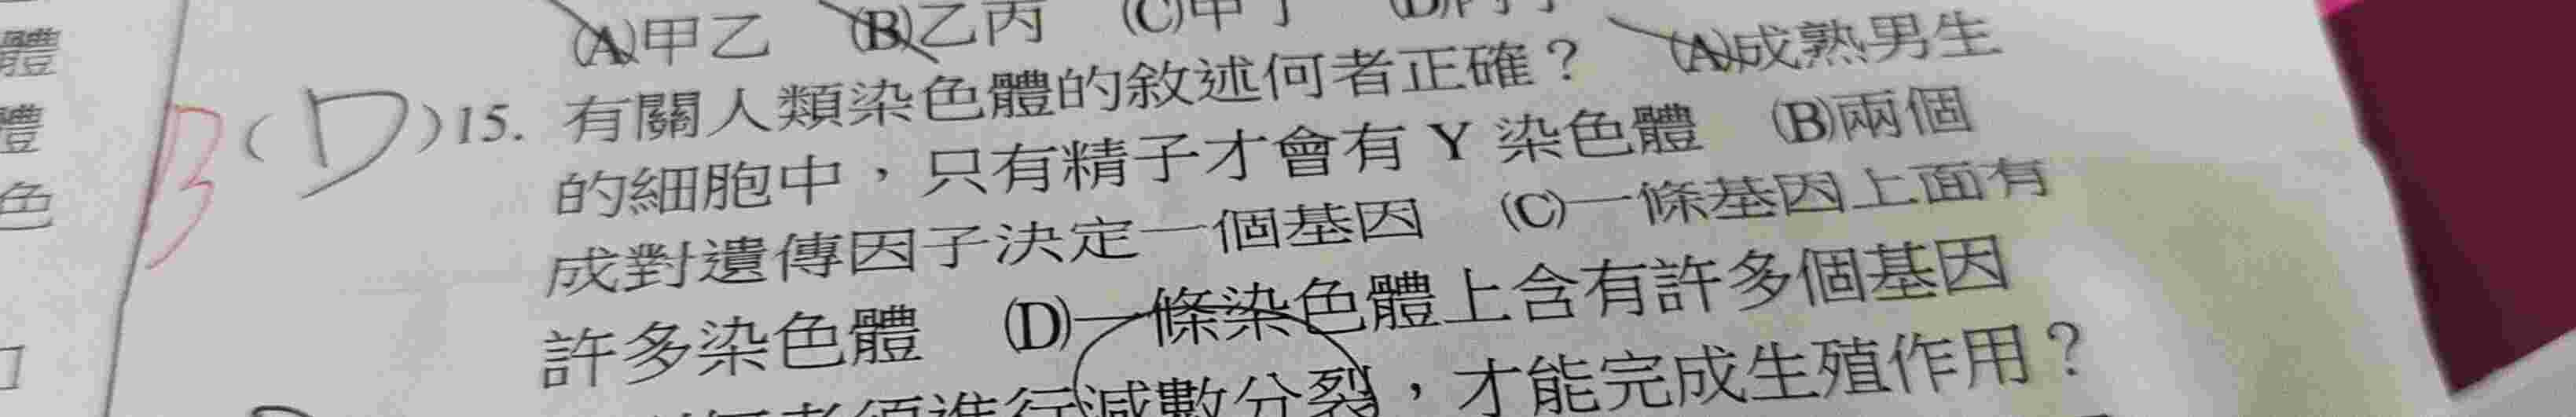 體
禮
色
(A)甲乙 (B)乙丙 (C)甲丁
B(D)15. 有關人類染色體的敘述何者正確？ (A)成熟男生
的細胞中，只有精子才會有 Y 染色體 (B)兩個
成對遺傳因子決定一個基因 (C)一條基因上面有
許多染色體 (D)一條染色體上含有許多個基因
須進行減數分裂，才能完成生殖作用？